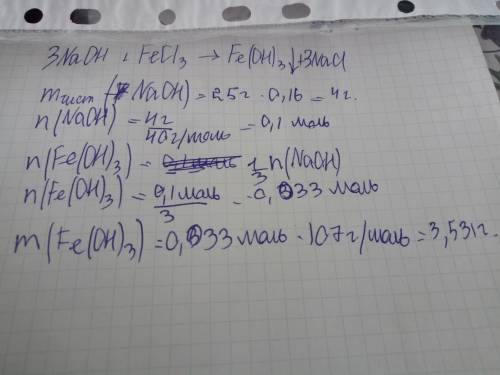 3NaOH + FeCl₃ → Fe(OH)₃↓+3NaCl
m чист (NaOH) = 25г · 0,16 = 4г.
n(NaOH) = 4г / 40г/моль = 0,1 моль
n(Fe(OH)₃) = 1/3 n(NaOH)
n(Fe(OH)₃) = 0,1моль / 3 = 0,033 моль
m(Fe(OH)₃) = 0,033моль · 107г/моль = 3,531г.